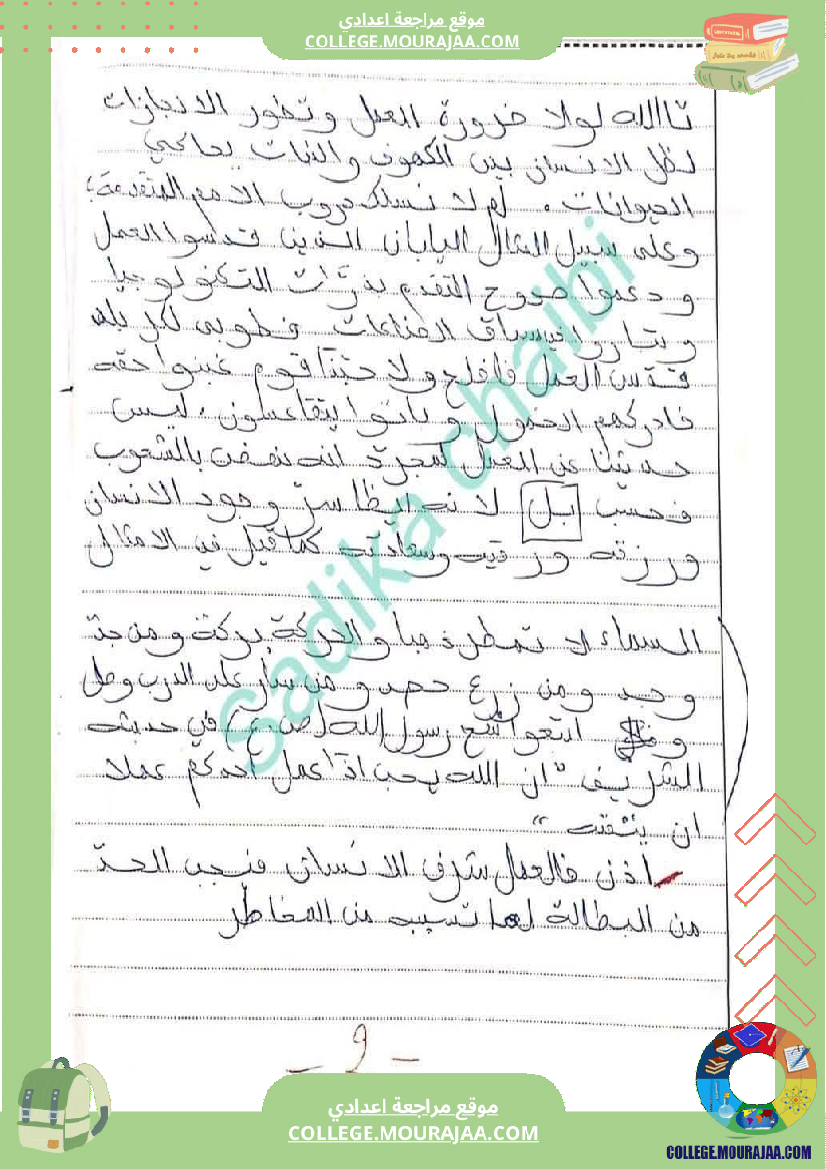 موقع مراجعة اعدادي
COLLEGE.MOURAJAA.COM
تاالله لولا ضرورة العمل وتطور الانجازات
لظل الانسان بين الكهوف والنبات يحاكي
الحيوانات. لم لا نسلك دروب الامم المتقدمة؛
وعلى سبيل المثال اليابان الذين قدسوا العمل
ودعموا صروح التقدم بذرّات التكنولوجيا
وتباروا في سباق الصناعات فطوبى لكل بلد
قدّس العمل فأفلح ولا حبّذا قوم غبنوا حقه
فادركهم الخمول وباتوا يتقاعسون. ليس
حديثنا عن العمل لمجرّد انه نهض بالشعوب
فحسب بل لانه ايظا سرّ وجود الانسان
ورزقه ورقيه وسعادته كما قيل في الامثال
السماء لا تمطر ذهبا والحركة بركة ومن جدّ
وجد ومن زرع حصد ومن سار على الدرب وصل
اتبعوا رسول الله (ص ع) في حديثه
الشريف "ان الله يحب اذا عمل احدكم عملا
ان يتقنه"
اذن فالعمل شرف الانسان فيجب الحدّ
من البطالة لما تسببه من المخاطر
Sadika chaibi
موقع مراجعة اعدادي
COLLEGE.MOURAJAA.COM
COLLEGE.MOURAJAA.COM